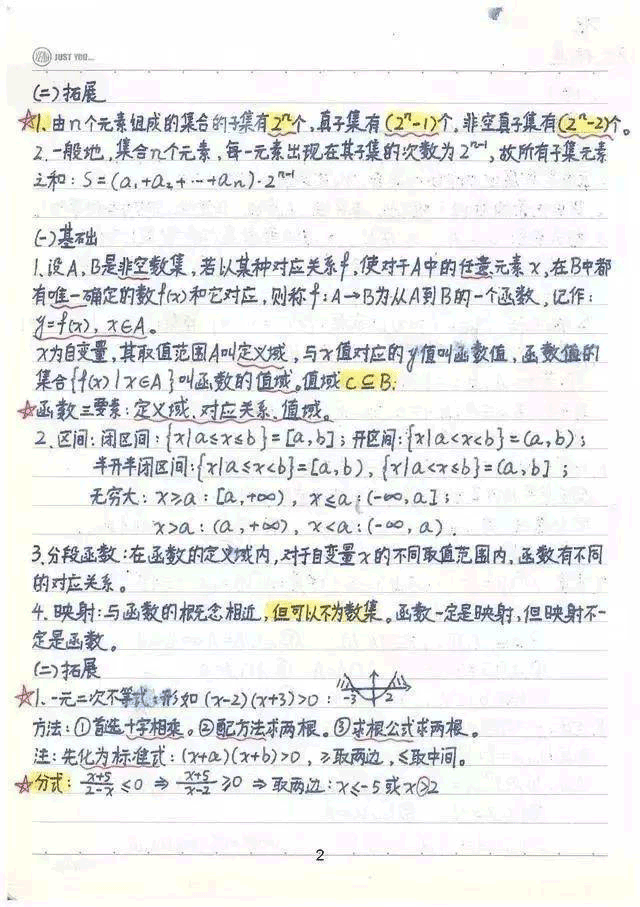 JUST YOU...
(二)拓展
☆1.由n个元素组成的集合的子集有2ⁿ个,真子集有(2ⁿ-1)个,非空真子集有(2ⁿ-2)个。
2.一般地,集合n个元素,每一元素出现在其子集的次数为2ⁿ⁻¹,故所有子集元素
之和:S=(a₁+a₂+…+aₙ)·2ⁿ⁻¹
(一)基础
1.设A,B是非空数集,若以某种对应关系f,使对于A中的任意元素x,在B中都
有唯一确定的数f(x)和它对应,则称f:A→B为从A到B的一个函数,记作:
y=f(x),x∈A。
x为自变量,其取值范围A叫定义域,与x值对应的y值叫函数值,函数值的
集合{f(x)|x∈A}叫函数的值域。值域C⊆B.
☆函数三要素:定义域、对应关系、值域。
2.区间:闭区间:{x|a≤x≤b}=[a,b];开区间:{x|a<x<b}=(a,b);
半开半闭区间:{x|a≤x<b}=[a,b),{x|a<x≤b}=(a,b];
无穷大:x≥a:[a,+∞),x≤a:(-∞,a];
x>a:(a,+∞),x<a:(-∞,a).
3.分段函数:在函数的定义域内,对于自变量x的不同取值范围内,函数有不同
的对应关系。
4.映射:与函数的概念相近,但可以不为数集。函数一定是映射,但映射不一
定是函数。
(二)拓展
☆1.一元二次不等式:形如(x-2)(x+3)>0: -3 2
方法:①首选十字相乘。②配方法求两根。③求根公式求两根。
注:先化为标准式:(x+a)(x+b)>0,≥取两边,≤取中间。
☆分式:(x+5)/(2-x)≤0⇒(x+5)/(x-2)≥0⇒取两边:x≤-5或x>2
2